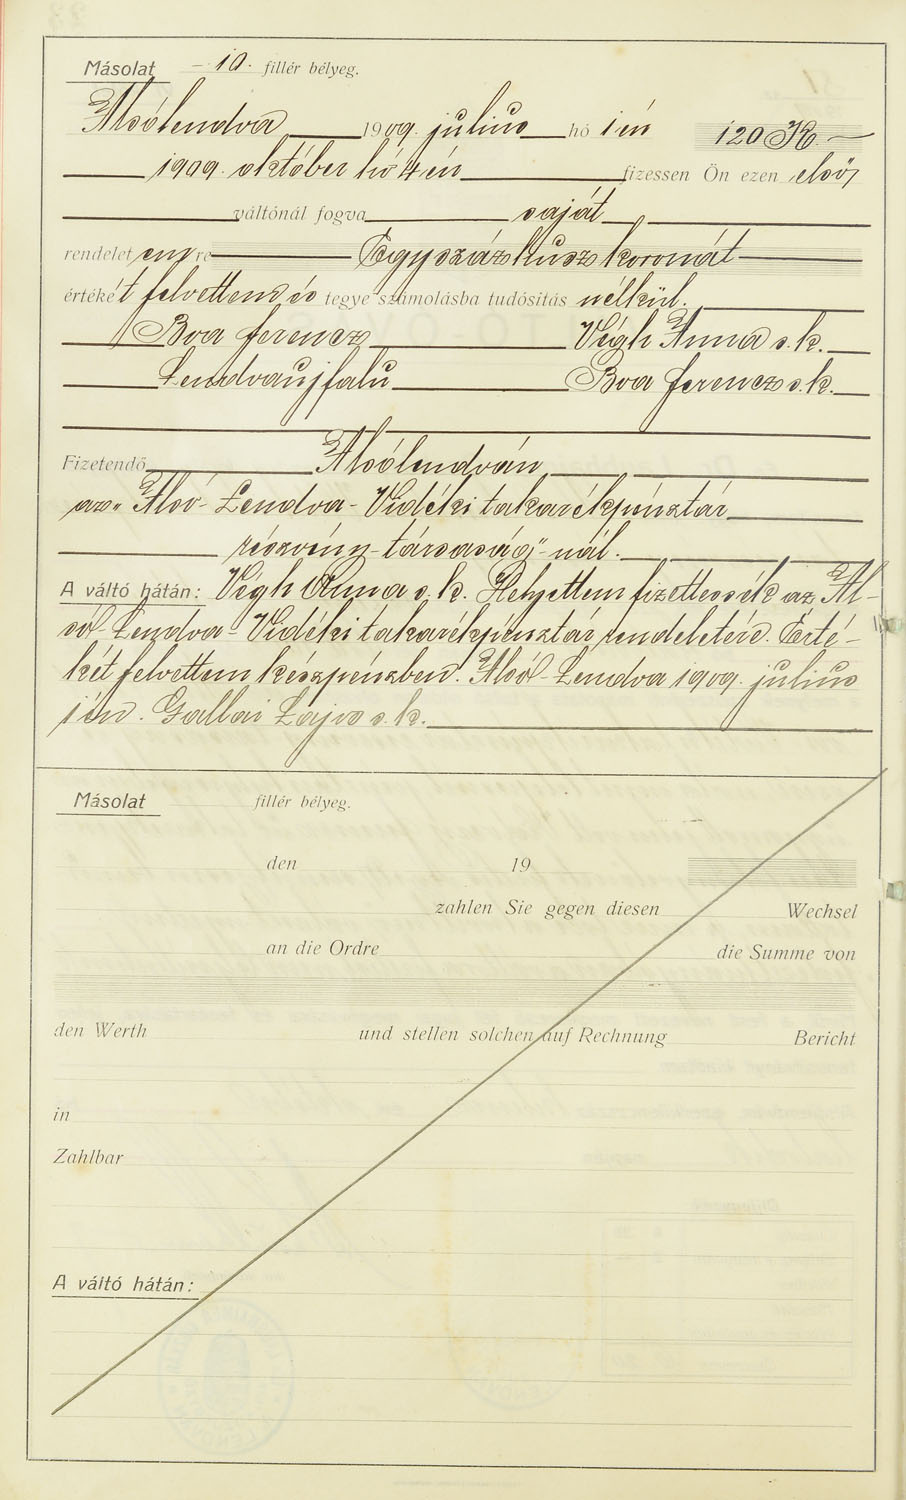 Másolat – 10. fillér bélyeg.
Alsólendva 1909. julius hó 1 én 120 K.
1909. október hó 4 én fizessen Ön ezen első
váltónál fogva saját
rendeletemre Egyszázhusz koronát
értékét felvettem és tegye számolásba tudósitás nélkül.
Bva Ferencz Végh Anna s. k.
Lendvaujfalu Bva Ferencz s. k.
Fizetendő Alsólendván
az „Alsó-Lendva-Vidéki takarékpénztár
részvény-társaság"-nál.
A váltó hátán: Végh Anna s. k. Helyettem fizettessék az Al-
só-Lendva-Vidéki takarékpénztár rendeletére. Érté-
két felvettem készpénzben. Alsó-Lendva 1909. julius
1 én. Gallai Lajos s. k.
Másolat fillér bélyeg.
den 19
zahlen Sie gegen diesen Wechsel
an die Ordre die Summe von
den Werth und stellen solchen auf Rechnung Bericht
in
Zahlbar
A váltó hátán: